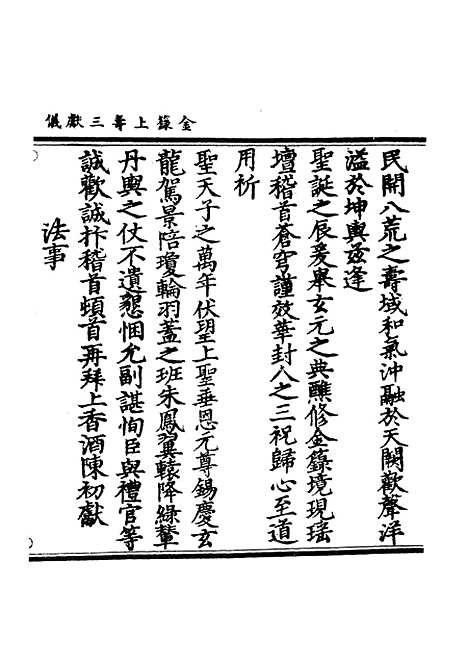 金籙上壽三獻儀
民開八荒之壽域和氣沖融於天闕歡聲洋
溢於坤輿茲逢
聖誕之辰爰舉玄元之典醮修金籙境現瑶
壇稽首蒼穹謹效華封人之三祝歸心至道
用祈
聖天子之萬年伏望上聖垂恩元尊錫慶玄
龍駕景陪瓊輪羽蓋之班朱鳳翼轅降綠輦
丹輿之仗不遺懇悃允副諶恂臣與禮官等
誠歡誠抃稽首頓首再拜上香酒陳初獻
法事